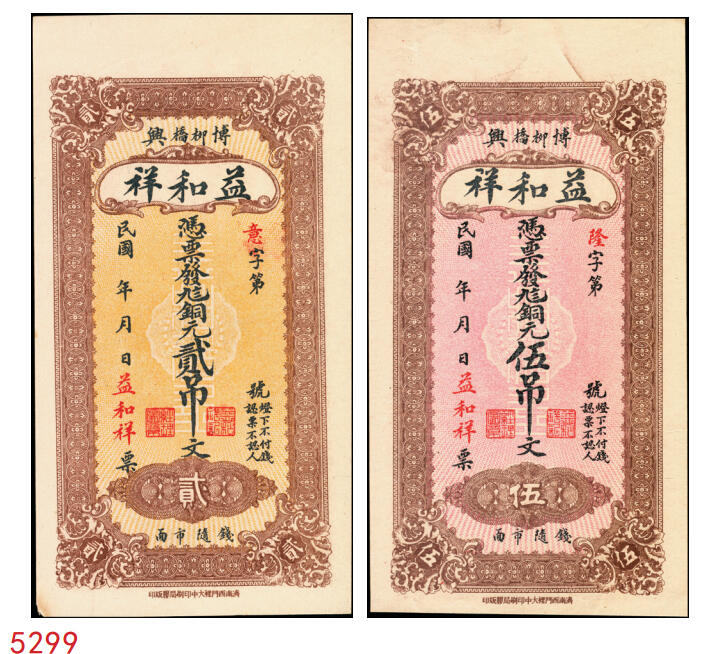 貳 貳
博柳橋興
益和祥
意字第 號
燈下不付錢
認票不認人
憑票發銅元貳吊文
民國 年 月 日 益和祥票
貳
錢隨市面
貳 貳
濟南西門裡大中印刷局膠版印
伍 伍
博柳橋興
益和祥
隆字第 號
燈下不付錢
認票不認人
憑票發銅元伍吊文
民國 年 月 日 益和祥票
伍
錢隨市面
伍 伍
濟南西門裡大中印刷局膠版印
5299